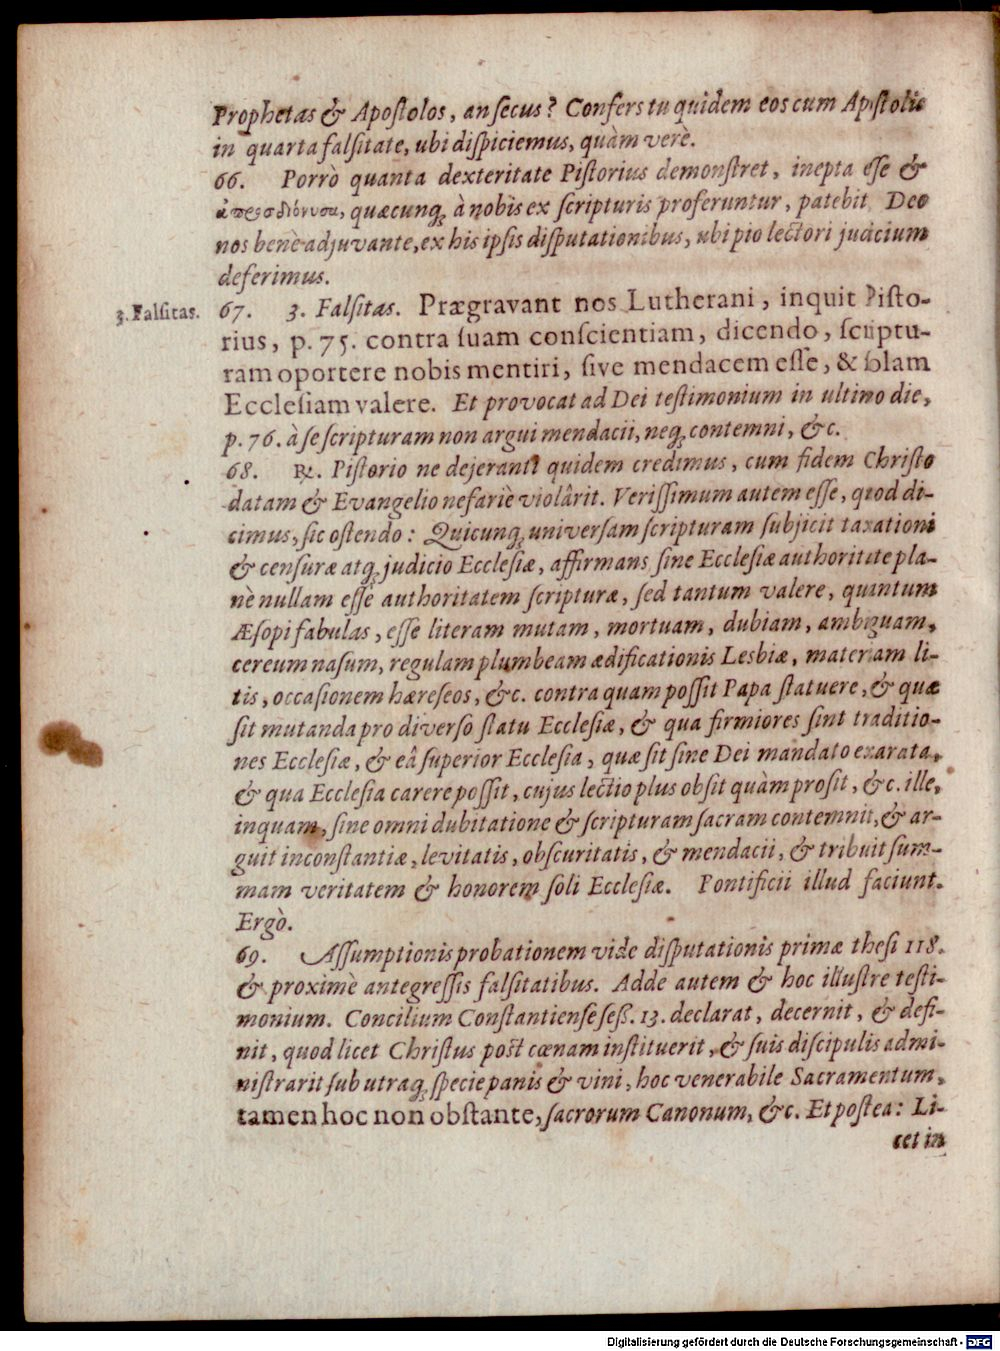 Prophetas & Apoſtolos, an ſecus? Confers tu quidem eos cum Apoſtolis
in quarta falſitate, ubi diſpiciemus, quàm verè.
66. Porrò quanta dexteritate Piſtorius demonſtret, inepta eſſe &
ἀπροσδιόνυσα, quæcunq; à nobis ex ſcripturis proferuntur, patebit Deo
nos benè adjuvante, ex his ipſis diſputationibus, ubi pio lectori judicium
deferimus.
3. Falſitas.
67. 3. Falſitas. Prægravant nos Lutherani, inquit Piſto-
rius, p. 75. contra ſuam conſcientiam, dicendo, ſcriptu-
ram oportere nobis mentiri, ſive mendacem eſſe, & ſolam
Eccleſiam valere. Et provocat ad Dei teſtimonium in ultimo die,
p. 76. à ſe ſcripturam non argui mendacii, neq; contemni, &c.
68. ℞. Piſtorio ne dejeranti quidem credimus, cum fidem Chriſto
datam & Evangelio nefariè violârit. Veriſſimum autem eſſe, quod di-
cimus, ſic oſtendo: Quicunq; univerſam ſcripturam ſubjicit taxationi
& cenſuræ atq; judicio Eccleſiæ, affirmans ſine Eccleſiæ authoritate pla-
nè nullam eſſe authoritatem ſcripturæ, ſed tantum valere, quantum
Æſopi fabulas, eſſe literam mutam, mortuam, dubiam, ambiguam,
cereum naſum, regulam plumbeam ædificationis Lesbiæ, materiam li-
tis, occaſionem hæreſeos, &c. contra quam poſſit Papa ſtatuere, & quæ
ſit mutanda pro diverſo ſtatu Eccleſiæ, & qua firmiores ſint traditio-
nes Eccleſiæ, & eâ ſuperior Eccleſia, quæ ſit ſine Dei mandato exarata,
& qua Eccleſia carere poſſit, cujus lectio plus obſit quàm proſit, &c. ille,
inquam, ſine omni dubitatione & ſcripturam ſacram contemnit, & ar-
guit inconſtantiæ, levitatis, obſcuritatis, & mendacii, & tribuit ſum-
mam veritatem & honorem ſoli Eccleſiæ. Pontificii illud faciunt.
Ergò.
69. Aſſumptionis probationem vide diſputationis primæ theſi 118.
& proximè antegreſſis falſitatibus. Adde autem & hoc illuſtre teſti-
monium. Concilium Conſtantienſe ſeſſ. 13. declarat, decernit, & defi-
nit, quod licet Chriſtus poſt cœnam inſtituerit, & ſuis diſcipulis admi-
niſtrarit ſub utraq; ſpecie panis & vini, hoc venerabile Sacramentum,
tamen hoc non obſtante, ſacrorum Canonum, &c. Et poſtea: Li-
cet in
Digitalisierung gefördert durch die Deutsche Forschungsgemeinschaft - DFG